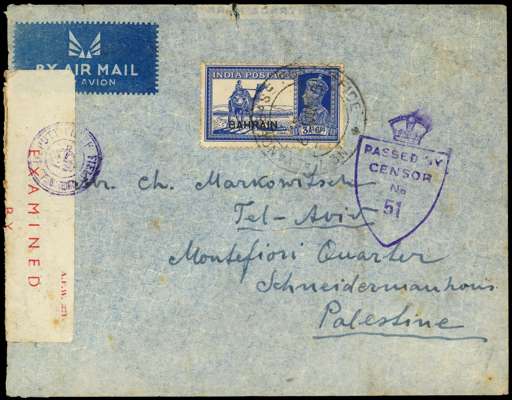 BY AIR MAIL
AVION
INDIA POSTAGE
BAHRAIN
PASSED BY
CENSOR
No
51
EXAMINED
BY
Mr. Ch. Markowitsch
Tel-Aviv
Montefiori Quarter
Schneidermanhous
Palestine